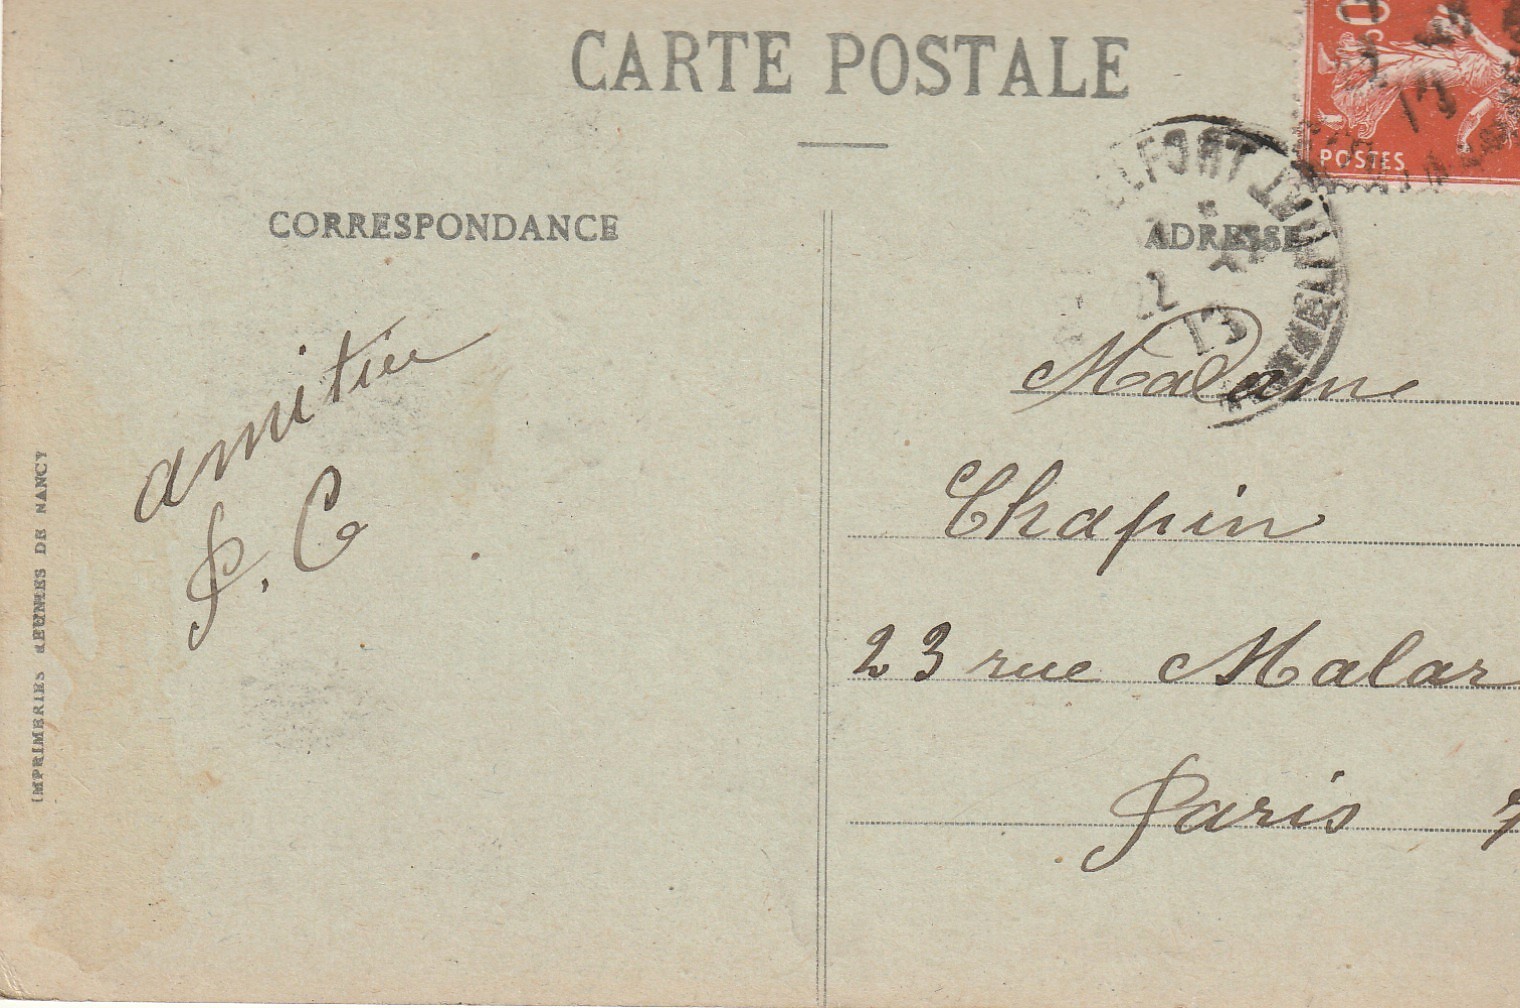 CARTE POSTALE
CORRESPONDANCE
ADRESSE
POSTES
22
13
amitiée
P. C
Madame
Chapin
23 rue Malar
Paris 7
IMPRIMERIES RÉUNIES DE NANCY